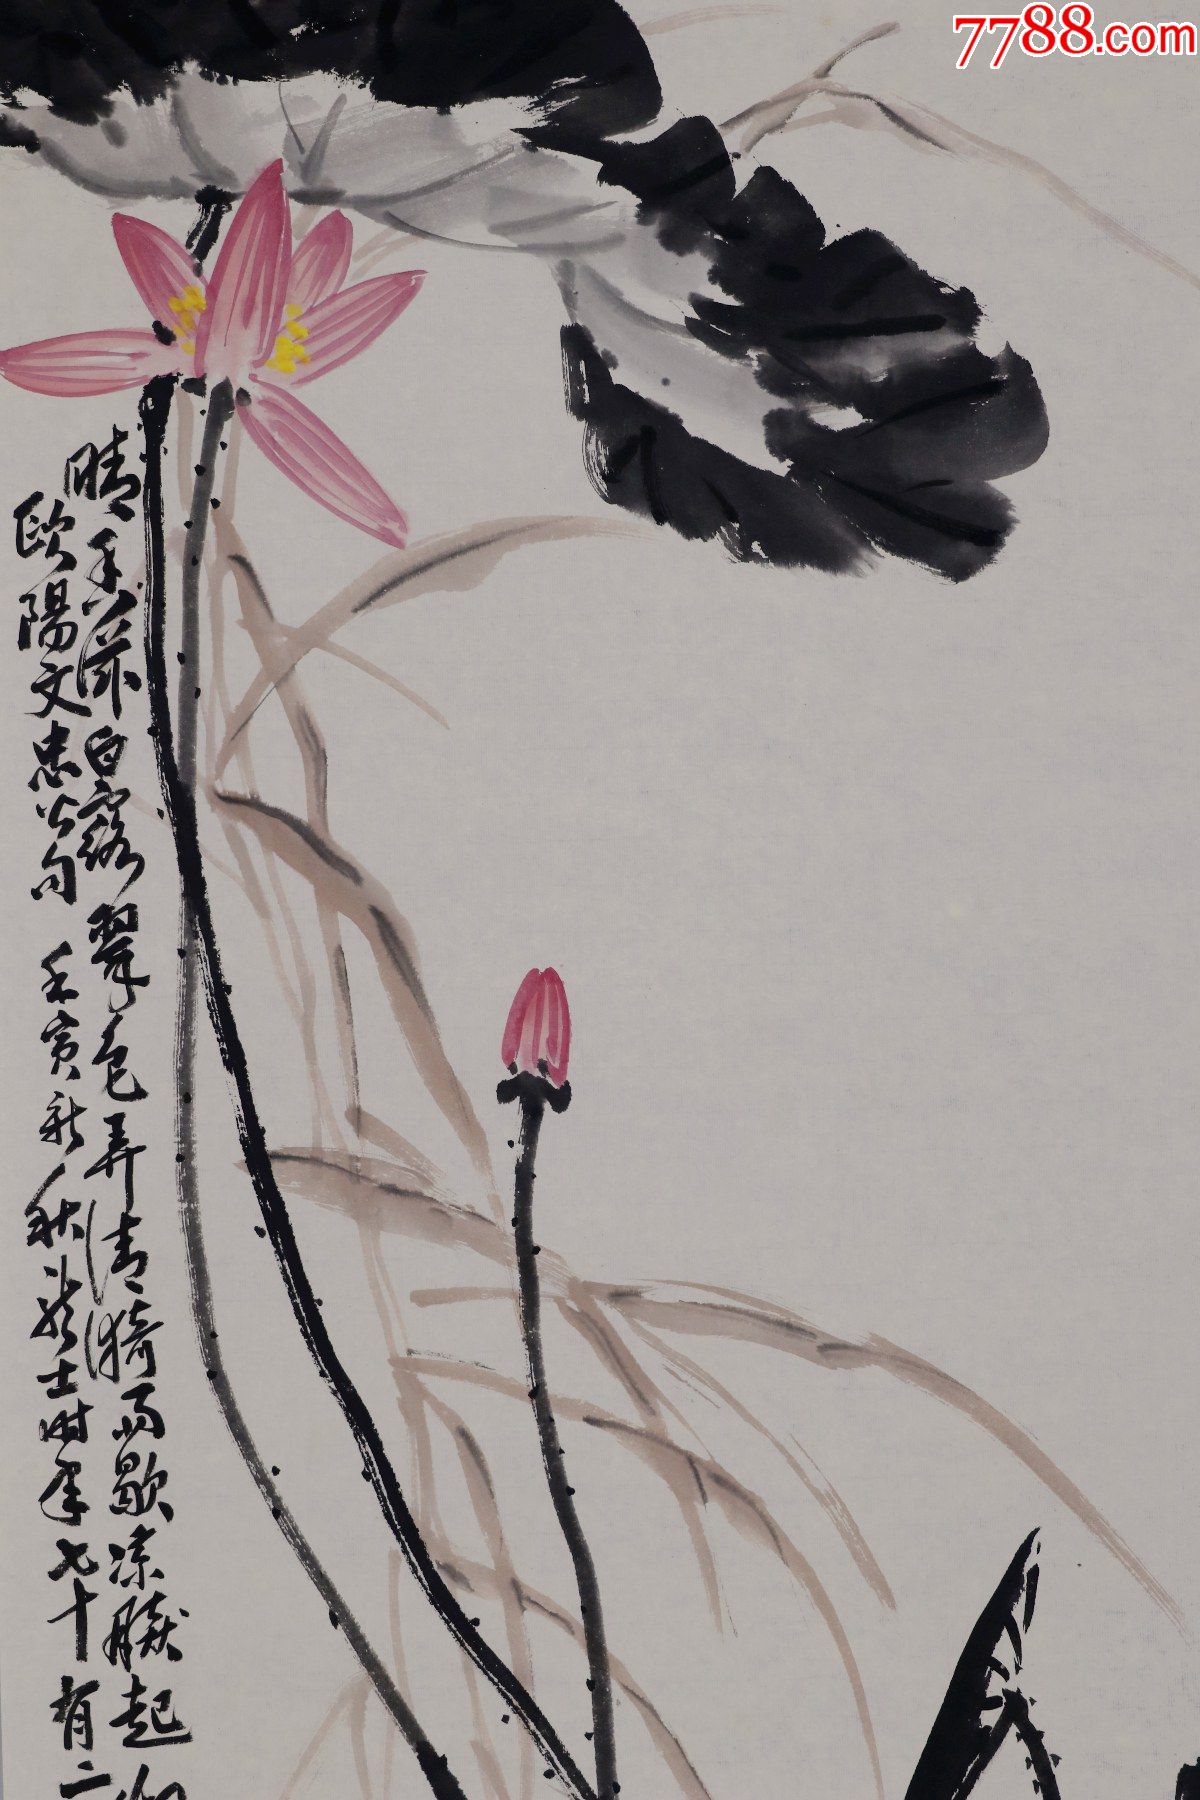 7788.com
晴香滋白露翠色弄清漪雨歇凉飈起
歐陽文忠公句 壬寅新秋 士時年七十有二